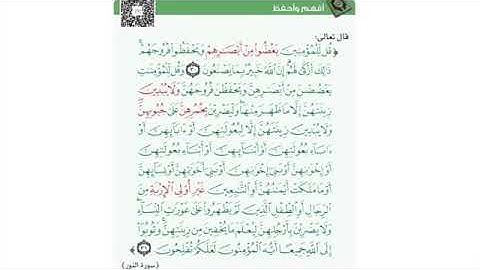 أفهم وأحفظ
قال تعالى:
﴿ قُل لِّلْمُؤْمِنِينَ يَغُضُّوا۟ مِنْ أَبْصَـٰرِهِمْ وَيَحْفَظُوا۟ فُرُوجَهُمْ ۚ
ذَٰلِكَ أَزْكَىٰ لَهُمْ ۗ إِنَّ ٱللَّهَ خَبِيرٌۢ بِمَا يَصْنَعُونَ ٣٠ وَقُل لِّلْمُؤْمِنَـٰتِ
يَغْضُضْنَ مِنْ أَبْصَـٰرِهِنَّ وَيَحْفَظْنَ فُرُوجَهُنَّ وَلَا يُبْدِينَ
زِينَتَهُنَّ إِلَّا مَا ظَهَرَ مِنْهَا ۖ وَلْيَضْرِبْنَ بِخُمُرِهِنَّ عَلَىٰ جُيُوبِهِنَّ ۖ
وَلَا يُبْدِينَ زِينَتَهُنَّ إِلَّا لِبُعُولَتِهِنَّ أَوْ ءَابَآئِهِنَّ أَوْ
ءَابَآءِ بُعُولَتِهِنَّ أَوْ أَبْنَآئِهِنَّ أَوْ أَبْنَآءِ بُعُولَتِهِنَّ
أَوْ إِخْوَٰنِهِنَّ أَوْ بَنِىٓ إِخْوَٰنِهِنَّ أَوْ بَنِىٓ أَخَوَٰتِهِنَّ أَوْ نِسَآئِهِنَّ
أَوْ مَا مَلَكَتْ أَيْمَـٰنُهُنَّ أَوِ ٱلتَّـٰبِعِينَ غَيْرِ أُو۟لِى ٱلْإِرْبَةِ مِنَ
ٱلرِّجَالِ أَوِ ٱلطِّفْلِ ٱلَّذِينَ لَمْ يَظْهَرُوا۟ عَلَىٰ عَوْرَٰتِ ٱلنِّسَآءِ ۖ
وَلَا يَضْرِبْنَ بِأَرْجُلِهِنَّ لِيُعْلَمَ مَا يُخْفِينَ مِن زِينَتِهِنَّ ۚ وَتُوبُوٓا۟
إِلَى ٱللَّهِ جَمِيعًا أَيُّهَ ٱلْمُؤْمِنُونَ لَعَلَّكُمْ تُفْلِحُونَ ٣١ ﴾
(سورة النور)